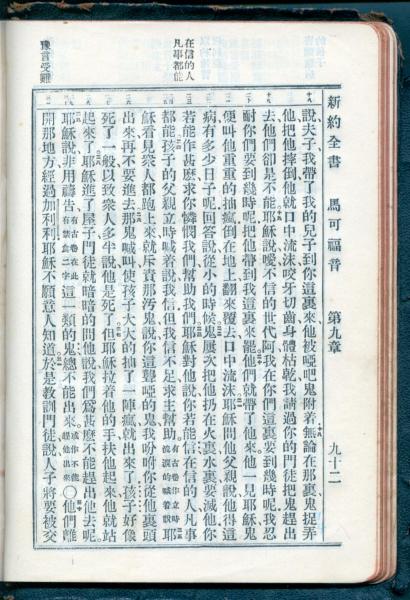 新約全書 馬可福音 第九章 九十二
說夫子我帶了我的兒子到你這裏來他被啞吧鬼附着無論在那裏鬼捉弄
他把他摔倒他就口中流沫咬牙切齒身體枯乾我請過你的門徒把鬼趕出
去他們卻是不能耶穌說噯不信的世代阿我在你們這裏要到幾時呢我忍
耐你們要到幾時呢把他帶到我這裏來罷他們就帶了他來他一見耶穌鬼
便叫他重重的抽瘋倒在地上翻來覆去口中流沫耶穌問他父親說他得這
病有多少日子呢回答說從小的時候鬼屢次把他扔在火裏水裏要滅他你
若能作甚麽求你憐憫我們幫助我們耶穌對他說你若能信在信的人凡事
都能孩子的父親立時喊着說我信但我信不足求主幫助有古卷作立時流淚的喊着說耶
穌看見衆人都跑上來就斥責那汚鬼說你這聾啞的鬼我吩咐你從他裏頭
出來再不要進去那鬼喊叫使孩子大大的抽了一陣瘋就出來了孩子好像
死了一般以致衆人多半說他是死了但耶穌拉着他的手扶他起來他就站
起來了耶穌進了屋子門徒就暗暗的問他說我們爲甚麽不能趕出他去呢
耶穌說非用禱告有古卷在此有禁食二字這一類的鬼總不能出來或作不能趕他出來〇他們離
開那地方經過加利利耶穌不願意人知道於是教訓門徒說人子將要被交
在信的人
凡事都能
豫言受難